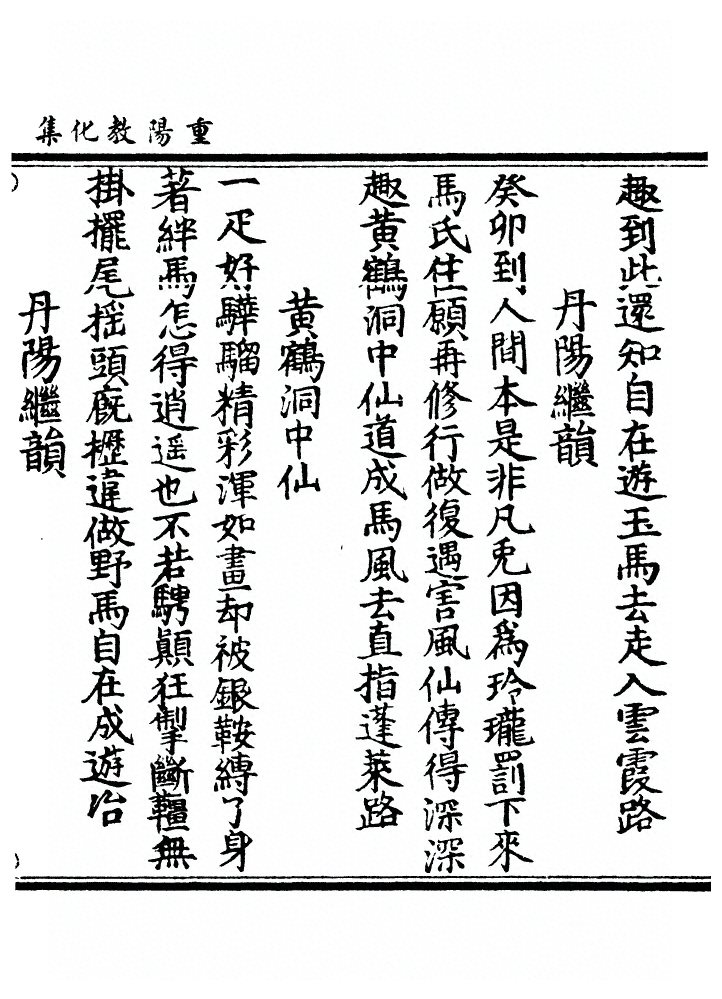 重陽教化集
趣到此還知自在遊玉馬去走入雲霞路
丹陽繼韻
癸卯到人間本是非凡兎因爲玲瓏罰下來
馬氏住願再修行做復遇害風仙傳得深深
趣黃鶴洞中仙道成馬風去直指蓬萊路
黃鶴洞中仙
一疋好驊騮精彩渾如畫却被銀鞍縳了身
著絆馬怎得逍遥也不若騁顛狂掣斷韁無
掛擺尾揺頭厩櫪違做野馬自在成遊冶
丹陽繼韻